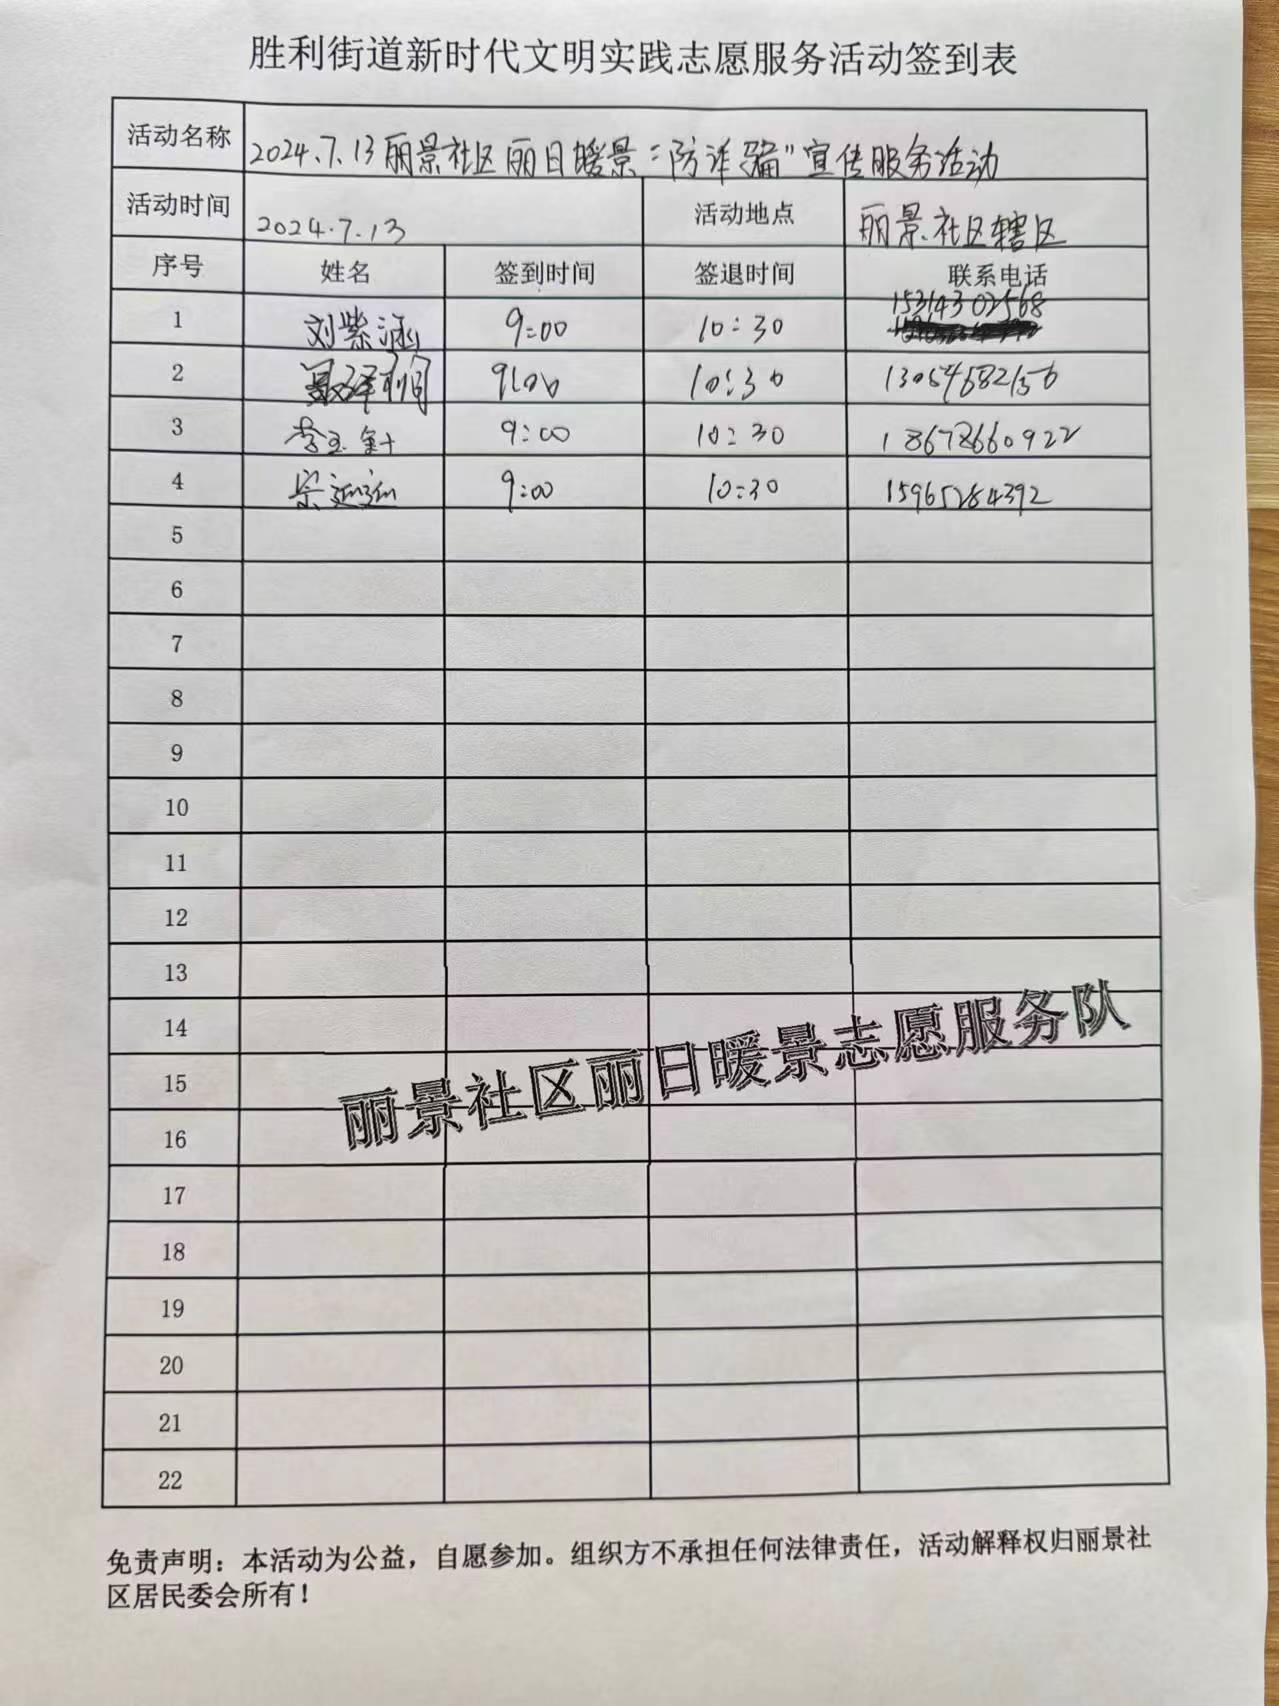 胜利街道新时代文明实践志愿服务活动签到表
活动名称 2024.7.13丽景社区丽日暖景“防诈骗”宣传服务活动
活动时间 2024.7.13 活动地点 丽景社区辖区
序号 姓名 签到时间 签退时间 联系电话
1 刘紫涵 9:00 10:30 15314302568
2 9:00 10:30
3 9:00 10:30 18678660922
4 宗延延 9:00 10:30 15965284392
5
6
7
8
9
10
11
12
13
14
15
16
17
18
19
20
21
22
丽景社区丽日暖景志愿服务队
免责声明：本活动为公益，自愿参加。组织方不承担任何法律责任，活动解释权归丽景社
区居民委会所有！